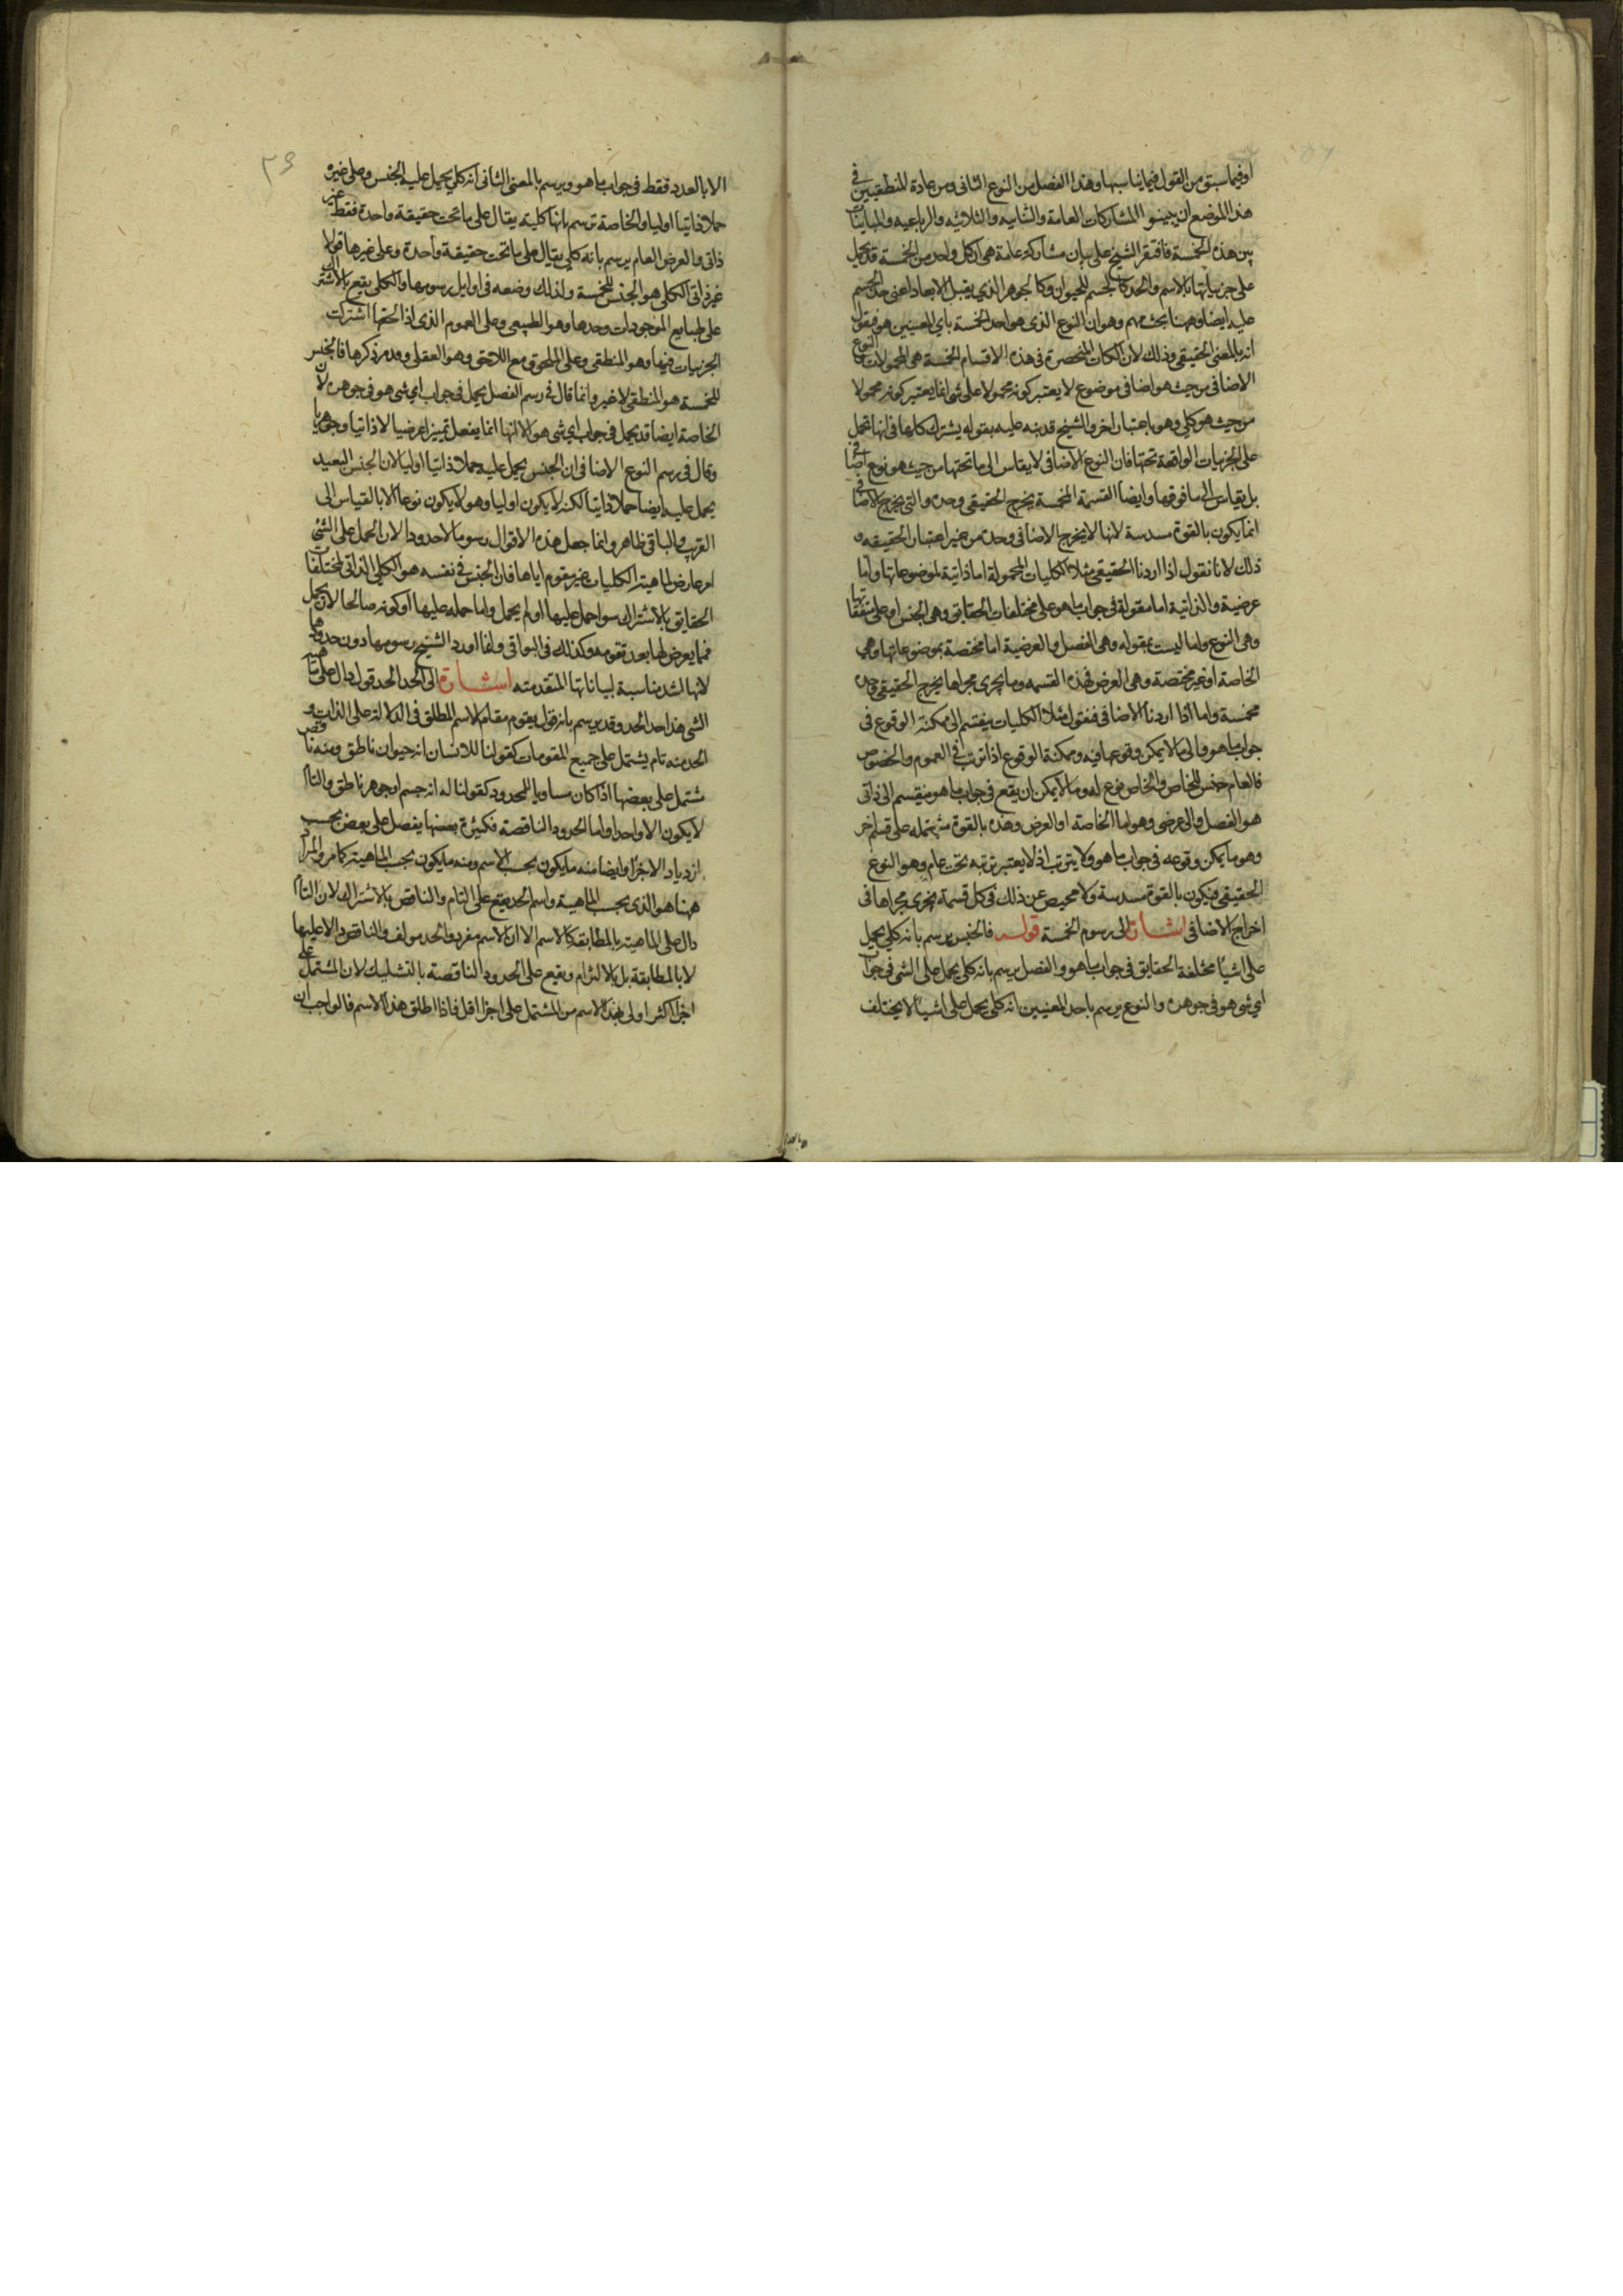 اوفيما سبق من القول فيما يناسبها وهذا الفصل من النوع الثانى ومن عادة المنطقيين فى
هذا الموضع ان يبينوا المشاركات العامة والثنائيه والثلاثيه والرباعيه والمباينات
بين هذه الخمسة فاقتصر الشيخ على بيان مشاركة عامة هى ان كل واحد من الخمسة قد يحمل
على جزئياتها بالاسم والحد كالجسم للحيوان وكالجوهر الذى يقبل الابعاد اعنى حد الجسم
عليه ايضا وههنا بحث مهم وهو ان النوع الذى هو احد الخمسة باى المعنيين هو فيقول
انه بالمعنى الحقيقى وذلك لان الكليات المنحصرة فى هذه الاقسام الخمسة هى المحمولات والنوع
الاضافى من حيث هو اضافى موضوع لا يعتبر كونه محمولا على شى انما يعتبر كونه محمولا
من حيث هو كلى وهو باعتبار اخر والشيخ قد نبه عليه بقوله يشترك كلها فى انها تحمل
على الجزئيات الواقعة تحتها فان النوع الاضافى لا يقاس الى ما تحتها من حيث هو نوع اضافى
بل يقاس الى ما فوقها وايضا القسمة المخمسة يخرج الحقيقى وحده والتى يخرج الاضافى
انما يكون بالقوة مسدسة لانها لا يخرج الاضافى وحده من غير اعتبار الحقيقه و
ذلك لانا نقول اذا اردنا الحقيقى مثلا الكليات المحمولة اما ذاتية لموضوعاتها واما
عرضية والذاتية اما مقولة فى جواب ما هو على مختلفات الحقايق وهى الجنس او على متفقاتها
وهى النوع واما ليست بمقوله وهى الفصل والعرضية اما مختصة بموضوعاتها وهى
الخاصة او غير مختصة وهى العرض فهذه القسمه وما يجرى مجراها يخرج الحقيقى وحده
مخمسة واما اذا اردنا الاضافى فنقول مثلا الكليات ينقسم الى ممكنة الوقوع فى
جواب ما هو والى ما لا يمكن وقوعها فيه وممكنة الوقوع اذا ترتب فى العموم والخصوص
فالعام جنس للخاص والخاص نوع له وما لا يمكن ان يقع فى جواب ما هو ينقسم الى ذاتى
هو الفصل والى عرضى وهو اما الخاصة او العرض وهذه بالقوة مشتمله على قسم اخر
وهو ما يمكن وقوعه فى جواب ما هو ولا يترتب اذ لا يعتبر ترتبه تحت عام وهو النوع
الحقيقى فيكون بالقوة مسدسة ولا محيص عن ذلك فى كل قسمة يجرى مجراها فى
اخراج الاضافى اشارة الى رسوم الخمسة قوله فالجنس يرسم بانه كلى يحمل
على اشيا مختلفة الحقايق فى جواب ما هو والفصل يرسم بانه كلى يحمل على الشى فى جواب
اى شى هو فى جوهره والنوع يرسم باحد المعنيين انه كلى يحمل على اشيا لا يختلف
الا بالعدد فقط فى جواب ما هو ويرسم بالمعنى الثانى انه كلى يحمل عليه الجنس وعلى غيره
حملا ذاتيا اوليا والخاصة ترسم بانها كلية يقال على ما تحت حقيقة واحدة فقط غير
ذاتى والعرض العام يرسم بانه كلى يقال على ما تحت حقيقة واحدة وعلى غيرها قولا
غير ذاتى الكلى هو الجنس للخمسة ولذلك وضعه فى اوايل رسومها والكلى يقع بالاشتراك
على طبايع الموجودات وحدها وهو الطبيعى وعلى العموم الذى اذا لحقها اشتركت
الجزئيات فيها وهو المنطقى وعلى الملحوق مع اللاحق وهو العقلى وقد مر ذكرها فالجنس
للخمسة هو المنطقى لا غير وانما قال فى رسم الفصل يحمل فى جواب اى شى هو فى جوهره لان
الخاصة ايضا قد يحمل فى جواب اى شى هو الا انها انما يفصل تمييزا عرضيا لا ذاتيا وجوهريا
وقال فى رسم النوع الاضافى ان الجنس يحمل عليه حملا ذاتيا اوليا لان الجنس البعيد
يحمل عليه ايضا حملا ذاتيا لكنه لا يكون اوليا وهو لا يكون نوعا الا بالقياس الى
القريب والباقى ظاهر وانما جعل هذه الاقوال رسوما لا حدودا لان الحمل على الشى
امر عارض لماهية الكليات غير مقوم اياها فان الجنس فى نفسه هو الكلى الذاتى لمختلفات
الحقايق بالاشتراك سوا حمل عليها او لم يحمل واما حمله عليها او كونه صالحا لان يحمل
فمما يعرض لها بعد تقومه وكذلك فى البواقى ولهذا اورد الشيخ رسومها دون حدودها
لانها اشد مناسبة لبياناتها المتقدمة اشارة الى الحد الحد قول دال على ماهية
الشى هذا حد الحد وقد يرسم بانه قول يقوم مقام الاسم المطلق فى الدلالة على الذات و
الحد منه تام يشتمل على جميع المقومات كقولنا للانسان انه حيوان ناطق ومنه ناقص
يشتمل على بعضها اذا كان مساويا للمحدود كقولنا له انه جسم او جوهر ناطق والتام
لا يكون الا واحدا واما الحدود الناقصة فكثيرة بعضها يفضل على بعض بحسب
ازدياد الاجزا وايضا منه ما يكون بحسب الاسم ومنه ما يكون بحسب الماهية كما مر والمراد
ههنا هو الذى بحسب الماهية واسم الحد يقع على التام والناقص بالاشتراك لان التام
دال على الماهية بالمطابقة كالاسم الا ان الاسم مفرد والحد مولف والناقص دال عليها
لا بالمطابقة بل بالالتزام ويقع على الحدود الناقصة بالتشكيك لان المشتمل على
اجزا اكثر اولى بهذا الاسم من المشتمل على اجزا اقل فاذا اطلق هذا الاسم فالواجب ان